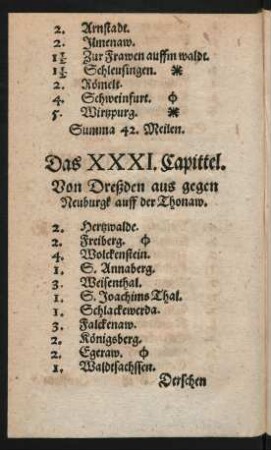 2. Arnstadt.
2. Ilmenaw.
1½ Zur Frawen auffm waldt.
1½ Schleusingen. ⚹
2. Römelt.
4. Schweinfurt. ⌽
5. Wirtzpurg. ⚹
Summa 42. Meilen.
Das XXXI. Capittel.
Von Dreßden aus gegen
Neuburgk auff der Thonaw.
2. Hertzwalde.
2. Freiberg. ⌽
4. Wolckenstein.
1. S. Annaberg.
3. Weisenthal.
1. S. Joachims Thal.
1. Schlackewerda.
3. Falckenaw.
2. Königsberg.
2. Egeraw. ⌽
1. Waldtsachssen.
Derschen